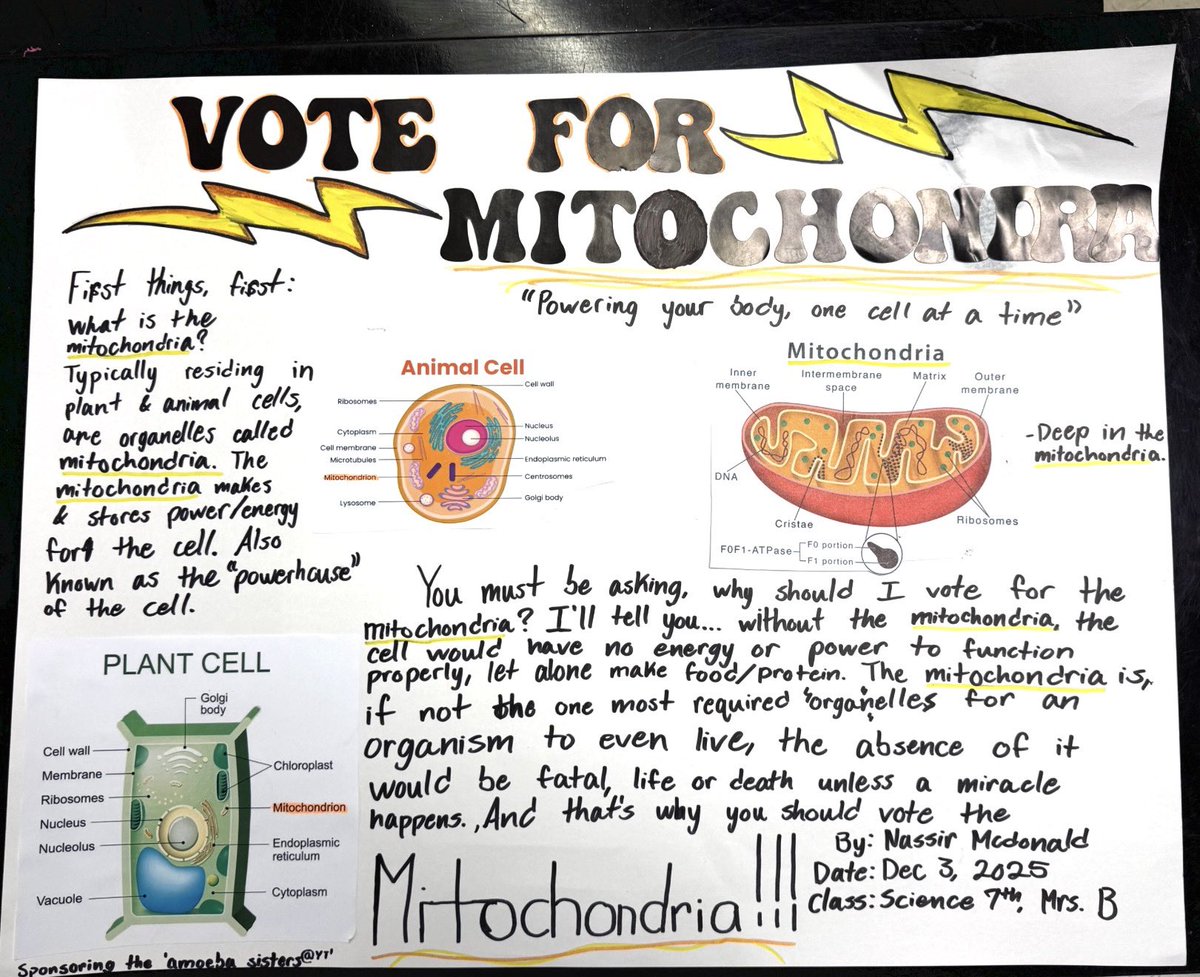 VOTE FOR
MITOCHONDRA
"Powering your body, one cell at a time"
First things, first:
what is the
mitochondria?
Typically residing in
plant & animal cells,
are organelles called
mitochondria. The
mitochondria makes
& stores power/energy
for the cell. Also
known as the "powerhouse"
of the cell.
Animal Cell
Cell wall
Ribosomes
Nucleus
Cytoplasm
Nucleolus
Cell membrane
Endoplasmic reticulum
Microtubules
Mitochondrion
Centrosomes
Golgi body
Lysosome
Mitochondria
Inner
membrane
Intermembrane
space
Matrix
Outer
membrane
DNA
Cristae
Ribosomes
F0F1-ATPase
F0 portion
F1 portion
-Deep in the
mitochondria.
You must be asking, why should I vote for the
mitochondria? I'll tell you... without the mitochondria, the
cell would have no energy or power to function
properly, let alone make food/protein. The mitochondria is,
if not the one most required "organelles for an
organism to even live, the absence of it
would be fatal, life or death unless a miracle
happens. And that's why you should vote the
Mitochondria!!!
By: Nassir Mcdonald
Date: Dec 3, 2025
Class: Science 7th, Mrs. B
PLANT CELL
Golgi
body
Cell wall
Membrane
Chloroplast
Ribosomes
Mitochondrion
Nucleus
Nucleolus
Endoplasmic
reticulum
Vacuole
Cytoplasm
Sponsoring the 'amoeba sisters@YT'